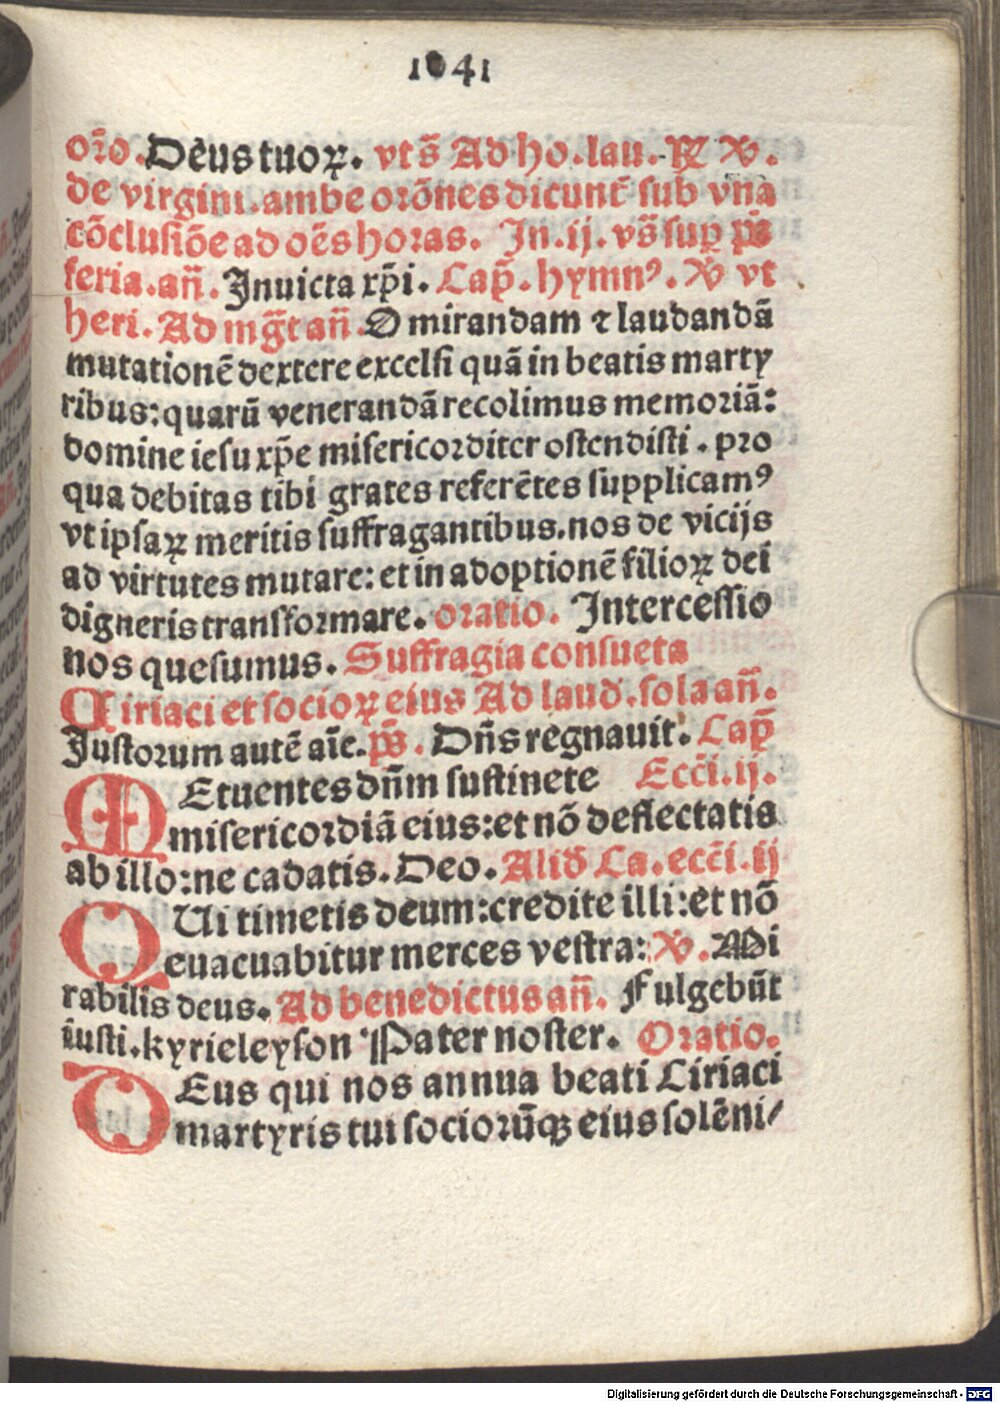 1041
or̄o. Dēus tuoꝝ. vts̄ Ad ho. lau. ℟ ℣.
de virgini. ambe orōnes dicunt̄ sub vna
cōclusiōe ad oēs horas. In. ij. vs̄ sup̱ ps̄
feria. an̄. Inuicta xp̄i. Cap̄. hymnꝰ. ℣ vt
heri. Ad mḡt an̄ O mirandam ⁊ laudandā
mutationē dextere excelsi quā in beatis marty
ribus: quarū venerandā recolimus memoriā:
domine iesu xp̄e misericorditer ostendisti. pro
qua debitas tibi grates referētes supplicamꝰ
vt ipsaꝝ meritis suffragantibus. nos de vicijs
ad virtutes mutare: et in adoptionē filioꝝ dei
digneris transformare. oratio. Intercessio
nos quesumus. Suffragia consueta
Ciriaci et socioꝝ eius Ad laud. sola an̄.
Justorum autē aīe. ps̄. Dn̄s regnauit. Cap̄
MEtuentes dn̄m sustinete Ecc̄i. ij.
misericordiā eius: et nō deflectatis
ab illo: ne cadatis. Deo. Aliđ Ca. ecc̄i. ij
QUi timetis deum: credite illi: et nō
euacuabitur merces vestra: ℣. Mi
rabilis deus. Ad benedictus an̄. Fulgebūt
iusti. kyrieleyson Pater noster. Oratio.
DEus qui nos annua beati Ciriaci
martyris tui sociorūqꝫ eius solēni/
Digitalisierung gefördert durch die Deutsche Forschungsgemeinschaft - DFG